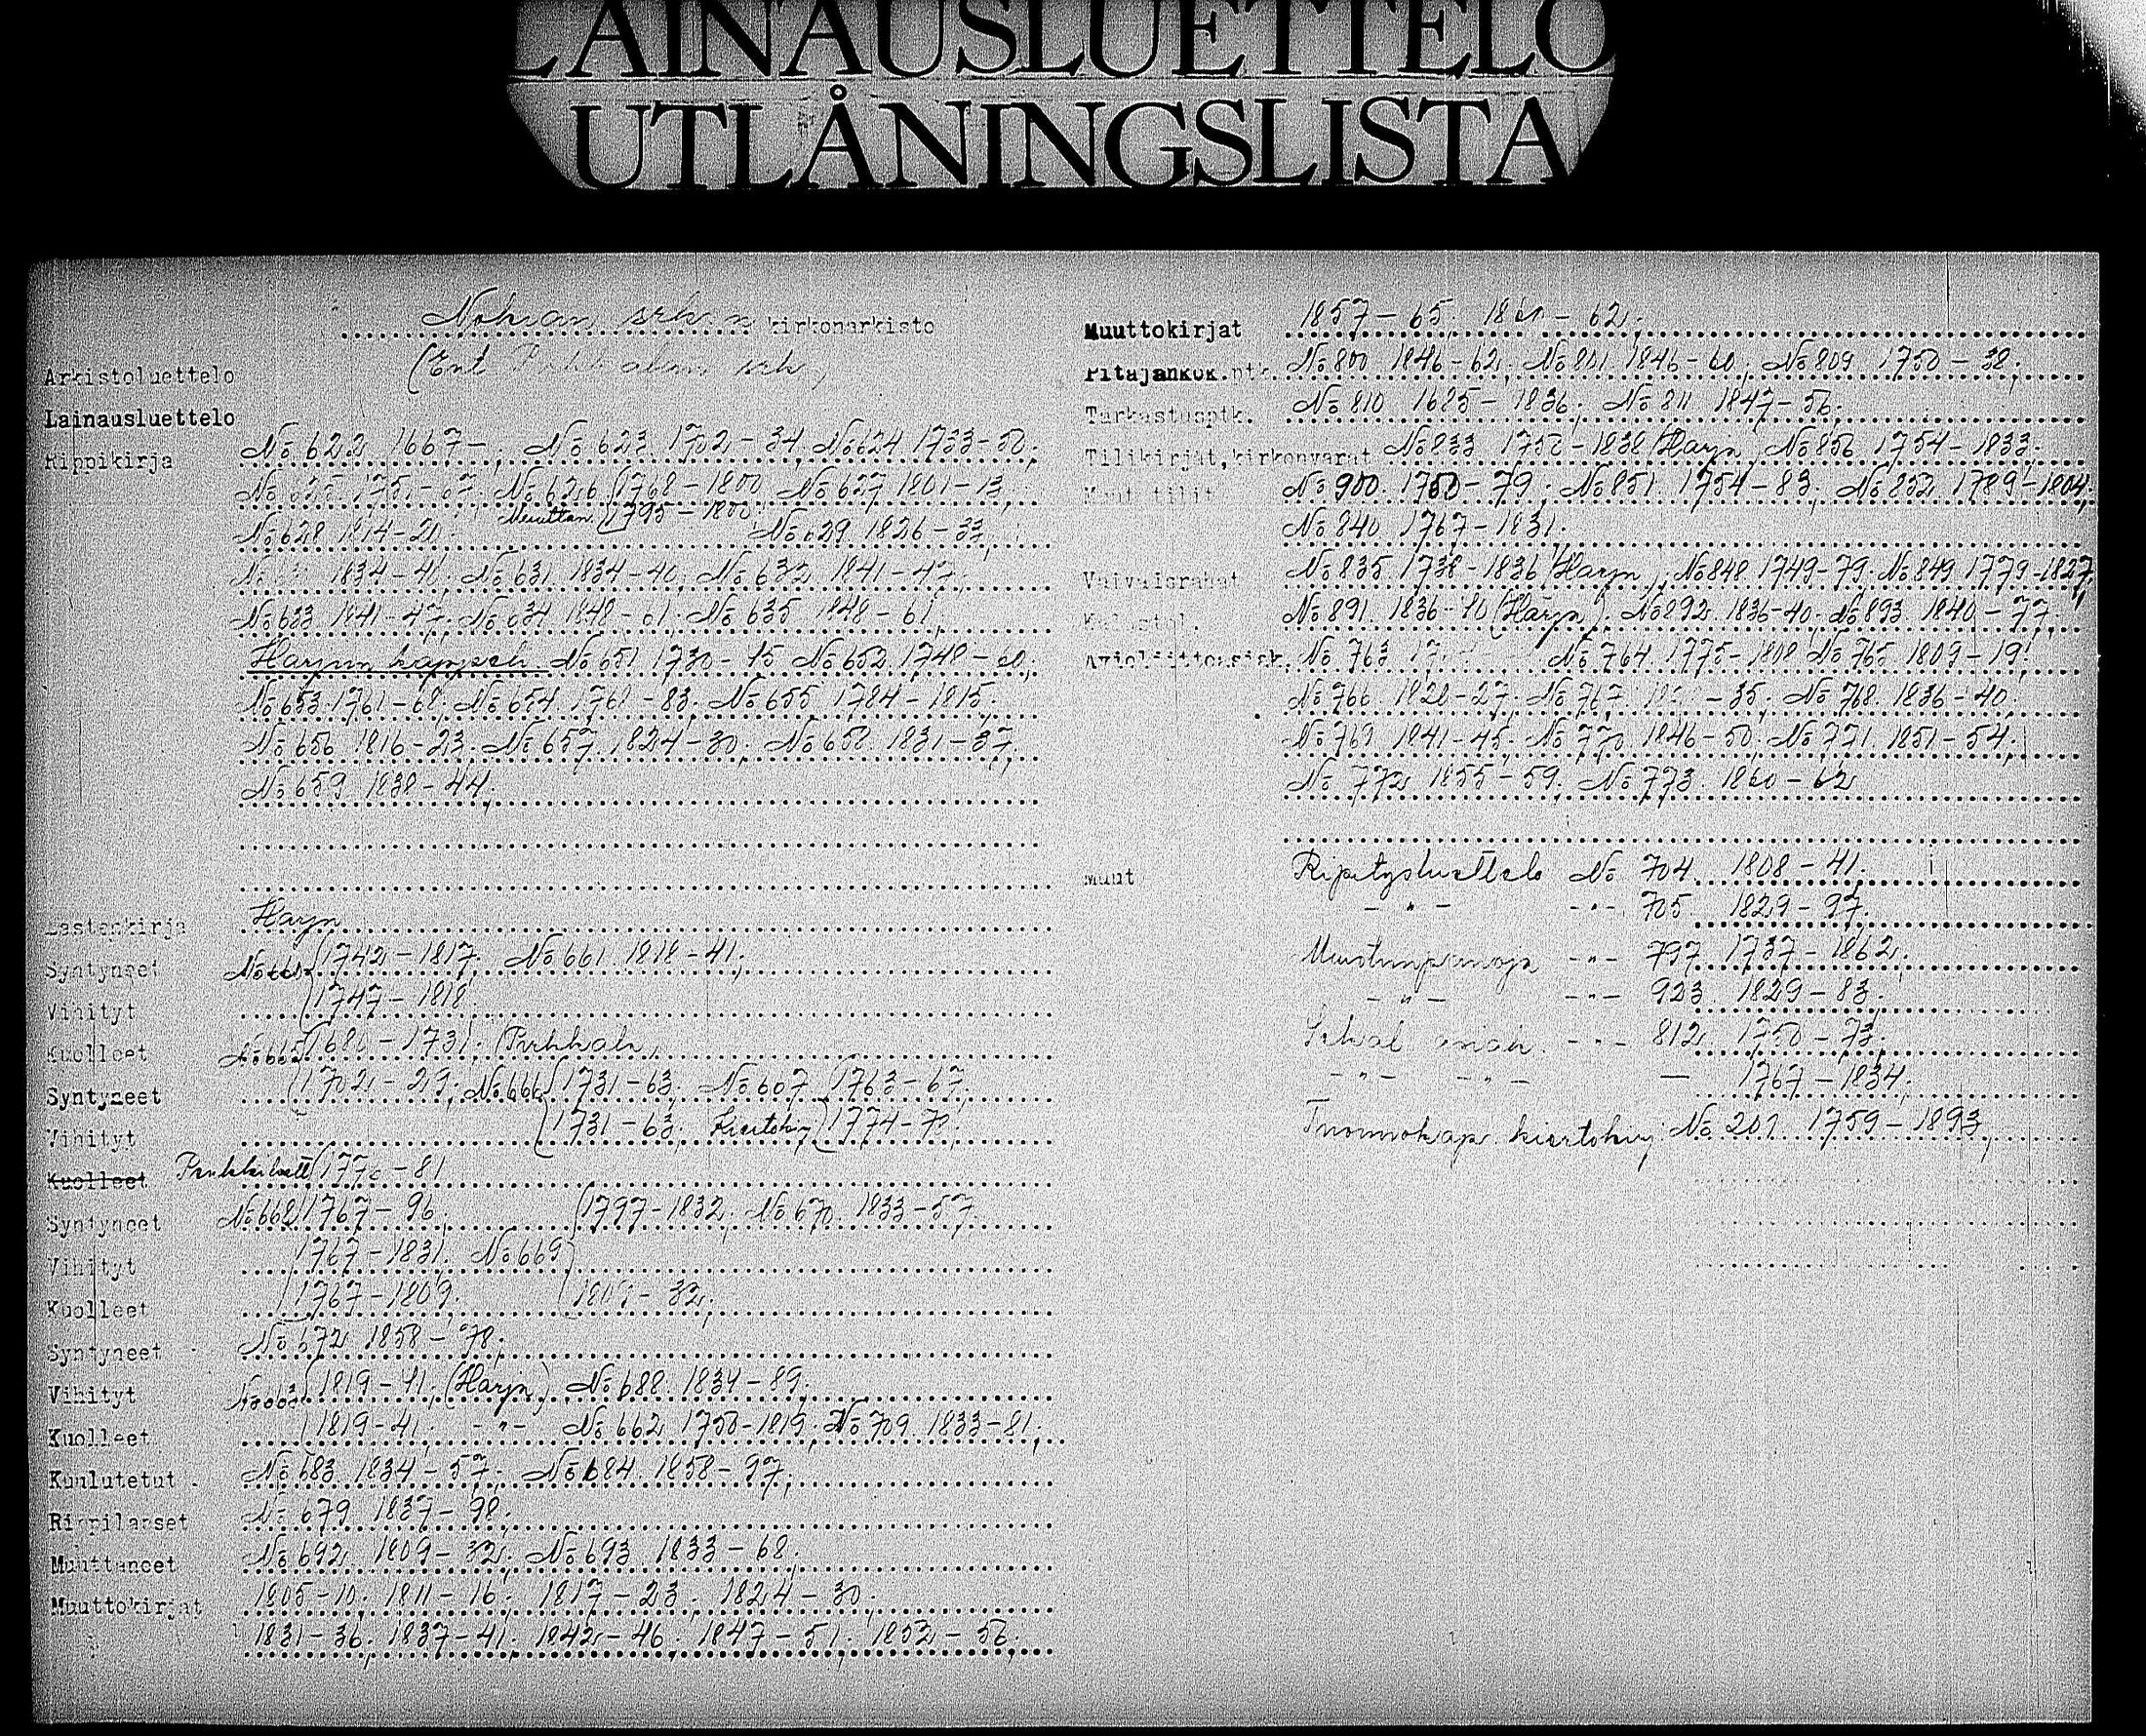 LAINAUSLUETTELO
UTLÅNINGSLISTA
Nokian srk:n kirkonarkisto
Arkistoluettelo (Ent Pirkkalan srk)
Lainausluettelo
Rippikirja No 622 1667-; No 623 1702-34, No 624 1733-50;
1751-67; No 626 {1768-1800 No 627 1801-13,
No 628 1814-20; Muuttan. {1795-1800; No 629 1826-33,
1834-40; No 631 1834-40; No 632 1841-47,
No 633 1841-47; No 634 1848-61; No 635 1848-61,
Harjun kappeli No 651 1730-45 No 652 1748-60;
No 653 1761-68; No 654 1761-83; No 655 1784-1815;
No 656 1816-23; No 657 1824-30; No 658 1831-37,
No 659 1838-44;
Lastenkirja Harjn
Syntyneet No 660 {1742-1817; No 661 1818-41;
Vihityt {1747-1818
Kuolleet No 665 {1680-1731; (Pirkkala)
Syntyneet {1702-29; No 666 {1731-63; No 667 {1763-67;
Vihityt {1731-63; Kiertokirj {1774-
{177 -81
Syntyneet No 668 {1767-96; {1797-1832; No 670 1833-57
Vihityt {1767-1831; No 669
Kuolleet {1767-1809; -32;
Syntyneet No 672 1858-78;
Vihityt No 663 {1819-41; (Harjn) No 688 1834-89;
Kuolleet {1819-41; -"- No 662 1750-1819; No 709 1833-81;
Kuulutetut No 683 1834-57; No 684 1858-97;
Rippilapset No 679 1837-98;
Muuttaneet No 692 1809-32; No 693 1833-68;
Muuttokirjat 1805-10; 1811-16; 1817-23; 1824-30;
1831-36; 1837-41; 1842-46; 1847-51; 1852-56;
Muuttokirjat 1857-65; 1861-62;
Pitäjänkok.ptk. No 800 1846-62; No 801 1846-60; No 809 1750-38;
Tarkastusptk. No 810 1685-1836; No 811 1847-56;
Tilikirjat, kirkonvarat No 833 1752-1838 (Harjn) No 856 1754-1833;
Muut tilit No 900 1750-79; No 851 1754-83; No 852 1789-1804;
No 840 1767-1831;
Vaivaisrahat No 835 1738-1836 (Harjn); No 848 1749-79; No 849 1779-1827;
No 891 1836-40 (Harjn); No 892 1836-40; No 893 1840-77,
Avioliittoasiak. No 763 No 764 1775-1808 No 765 1809-19;
No 766 1820-27; No 767 -35; No 768 1836-40;
No 769 1841-45; No 770 1846-50; No 771 1851-54;
No 772 1855-59; No 773 1860-62
Muut Ripitysluettelo No 704 1808-41;
-"- -"- 705 1829-97;
Muistiinpanoja -"- 797 1737-1862;
-"- -"- 923 1829-83;
Sekal asiak. -"- 812 1750-73;
-"- -"- — 1767-1834;
Tuomiokap. kiertokirj. No 201 1759-1893,